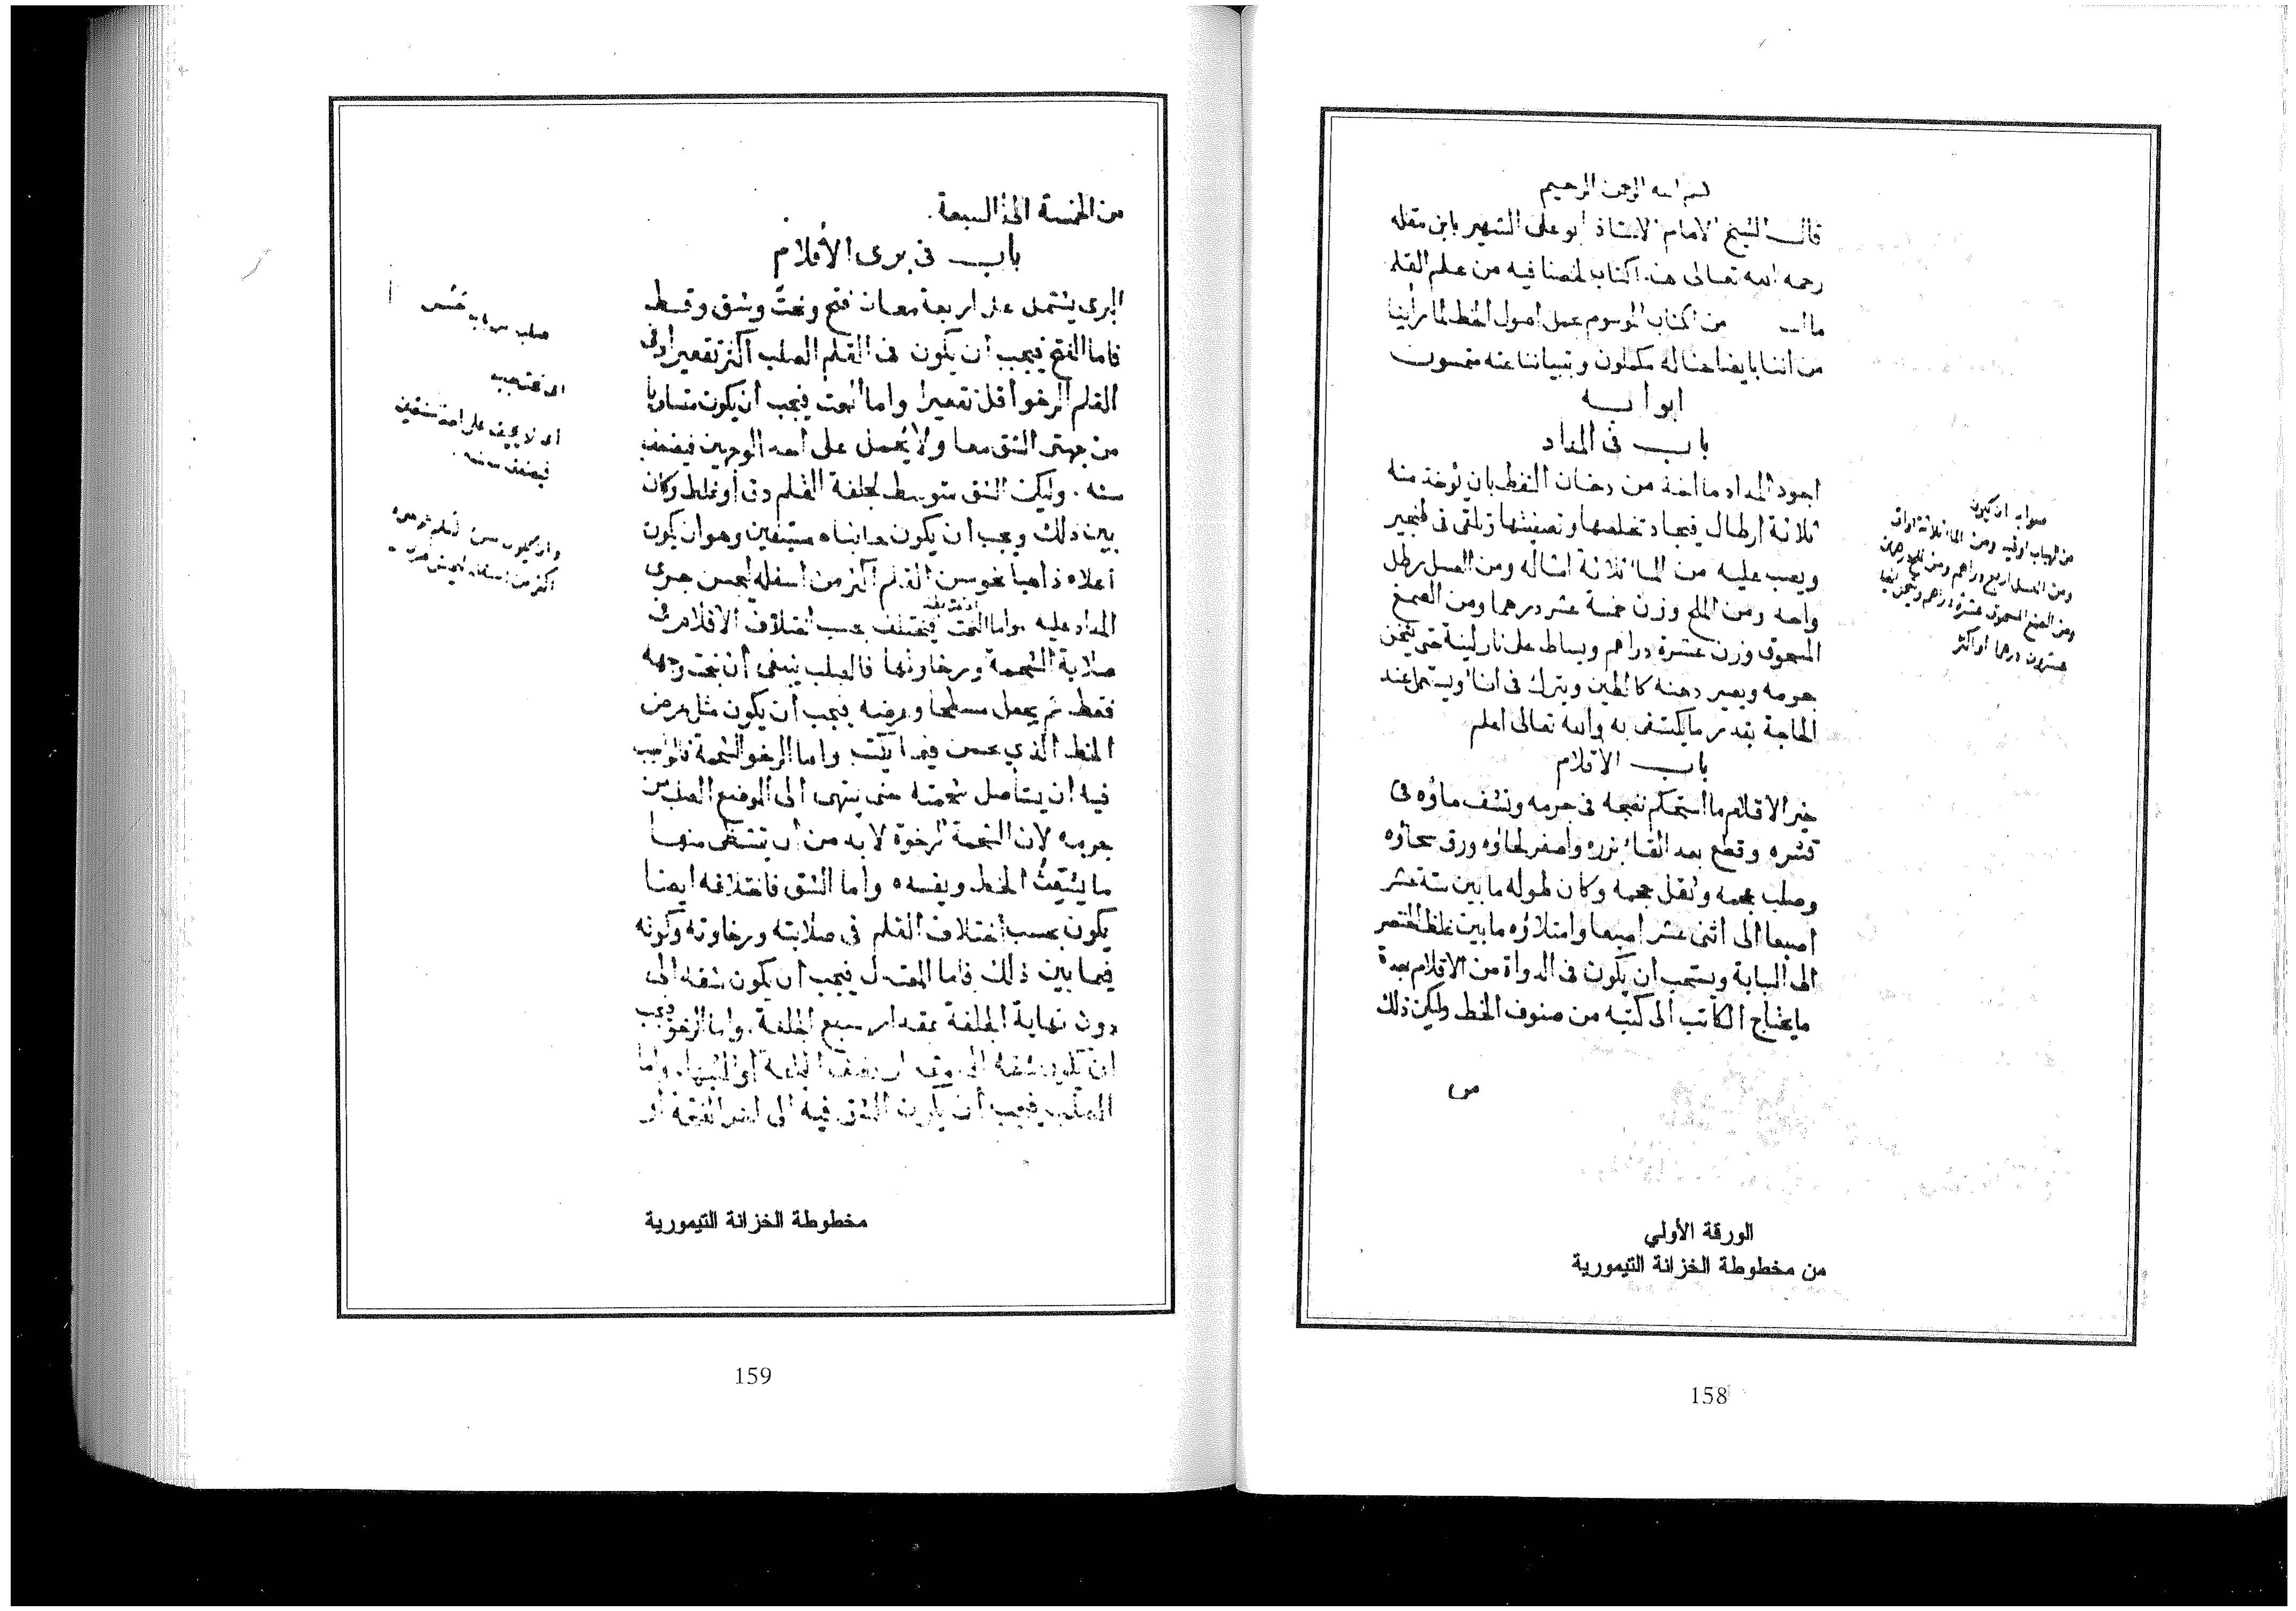 بسم الله الرحمن الرحيم
قال الشيخ الامام الاستاذ ابو على الشهير بابن مقله
رحمه الله تعالى هذا كتاب لخصنا فيه من علم القلم
من الكتاب الموسوم عمل اصول الخط لما راينا
من اننا بايضاحنا له مكملون وبتبياننا عنه متممون
ابوابه
باب فى المداد
اجود المداد ما اتخذ من دخان النفط بان يؤخذ منه
ثلاثة ارطال فيجاد تخلصها وتصفيتها وتلقى فى طنجير
ويصب عليه من الما ثلاثة امثاله ومن العسل رطل
واحد ومن الملح وزن خمسة عشر درهما ومن الصمغ
المسحوق وزن عشرة دراهم ويساط على نار لينة حتى يثخن
جرمه ويصير دهنه كالطين ويترك فى انا ويستعمل عند
الحاجة بقدر ما يكتفى به والله تعالى اعلم
صوابه ان يكون
من الهباب اوقيه ومن الما ثلاثة اواق
ومن العسل اربع دراهم ومن الملح درهمان
ومن الصمغ المسحوق عشرة دراهم
عشرون درهما او اكثر
باب الاقلام
خير الاقلام ما استحكم نضجه فى جرمه ونشف ماؤه فى
قشره وقطع بعد القا بزره واصفر لحاؤه ورق سحاؤه
وصلب شحمه وثقل حجمه وكان طوله ما بين ستة عشر
اصبعا الى اثنى عشر اصبعا وامتلاؤه ما بين غلظ الخنصر
الى السبابة ويستحب أن يكون فى الدواة من الاقلام بعدة
ما يحتاج الكاتب الى كتبه من صنوف الخط وليكن ذلك
من
الورقة الأولي
من مخطوطة الخزانة التيمورية
158
من الخمسة الى السبعة.
باب فى برى الأقلام
البرى يشتمل على اربعة معان فتح ونحت وشق وقط
فاما الفتح فيجب ان يكون فى القلم الصلب اكثر تقعيرا وفى
القلم الرخو أقل تقعيرا واما النحت فيجب أن يكون متساويا
من جهتى الشق معا ولا يحمل على احد الوجهين فيضعف
سنه. وليكن الشق متوسط لجلفة القلم دق أو غلظ وكان
بين ذلك ويجب ان يكون جانباه متيقفين وهو ان يكون
أعلاه ذاهبا نحو سن القلم أكثر من أسفله ليحسن جرى
المداد عليه واما النحت فيختلف بحسب اختلاف الاقلام فى
صلابة الشحمة ورخاوتها فالصلب ينبغى أن ينحت وجهه
فقط ثم يجعل مسطحا وعرضه فيجب أن يكون مثل عرض
الخط الذي يحسن فيما يكتب واما الرخو الشحمة فالواجب
فيه ان يستأصل شحمته حتى ينتهى الى الموضع الصلب من
جرمه لان الشحمة الرخوة لا بد من ان يتشظى منها
ما يشعث الخط ويفسده وأما الشق فاختلافه ايضا
يكون بحسب اختلاف القلم فى صلابته ورخاوته وكونه
فيما بين ذلك فاما المعتدل فيجب ان يكون شقه الى
دون نهاية الجلفة بمقدار سبع الجلفة. واما الرخو فيجب
ان يكون شقه الى مقدار نصف الجلفة أو ثلثيها. واما
الصلب فيجب أن يكون الشق فيه الى اخر الفتحة او
اى لا يحيف على احد شقين
فيضعف سنه.
وان يكون سن القلم
اكثر من اسفله
مخطوطة الخزانة التيمورية
159